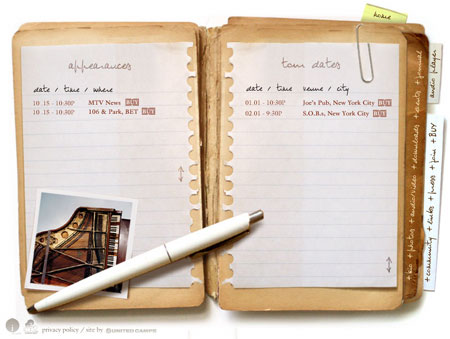 home
appearances
date / time / where
10 .15 - 10:30P MTV News BUY
10 .15 - 10:30P 106 & Park, BET BUY
tour dates
date / time venue / city
01.01 - 10:30P Joe's Pub, New York City BUY
02.01 - 9:30P S.O.B.s, New York City BUY
audio player
+ bio + photos + audio/video + downloads + events + journal
+ community + links + press + join + BUY
privacy policy / site by UNITEDCAMPS